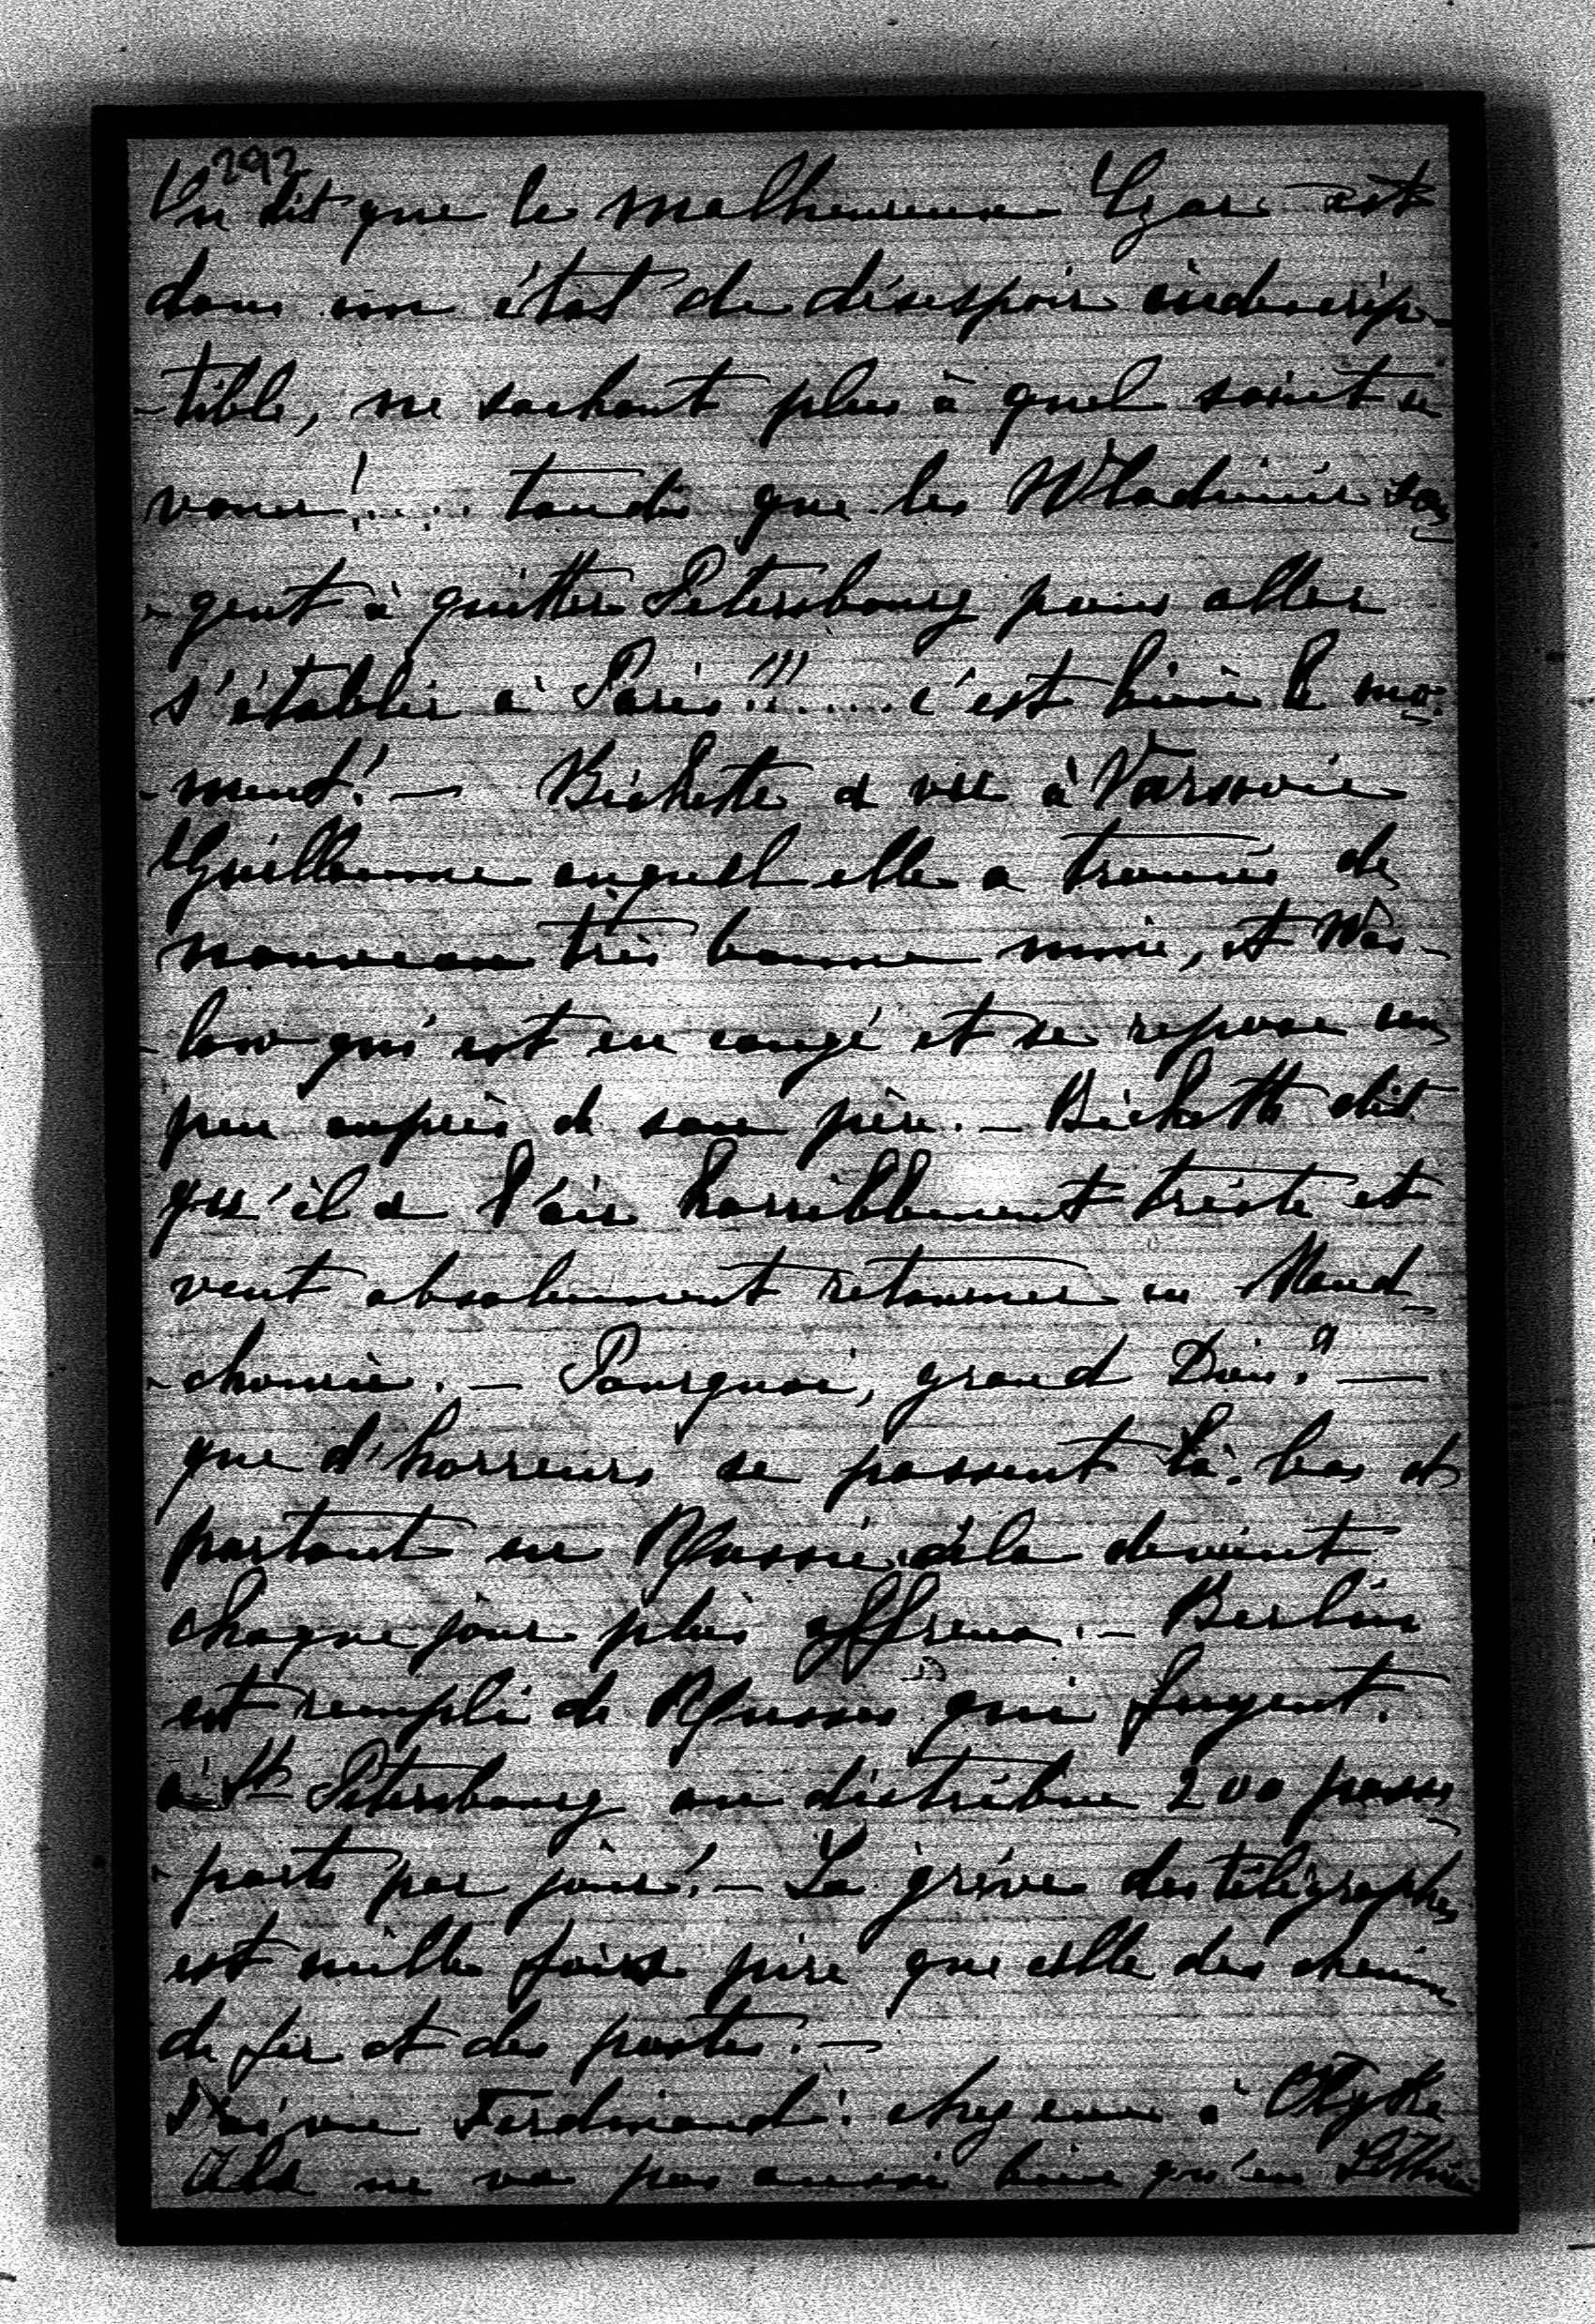 292
On dit que le malheureux Czar est
dans un état de désespoir indescrip-
-tible, ne sachant plus à quel saint se
vouer!.... tandis que les Wladimir son-
-gent à quitter Petersbourg pour aller
s'établir à Paris!!!..... c'est bien le mo-
-ment! — Bichette a vu à Varsovie
Guillaume auquel elle a trouvé de
nouveau très bonne mine, et Was-
-low qui est en congé et se repose un
peu auprès de son père. — Bichette dit
qu'il a l'air horriblement triste et
veut absolument retourner en Mand-
-chourie. — Pourquoi, grand Dieu? —
que d'horreurs se passent là-bas et
partout en Russie, cela devient
chaque jour plus affreux. — Berlin
est rempli de Russes qui fuyent.
à St Petersbourg on distribue 200 passe-
-ports par jour! — La grève des télégraphes
est mille fois pire que celle des chemins
de fer et des postes. —
J'ai vu Ferdinand: chez eux à Olyka
cela ne va pas aussi bien qu'en Lithua-